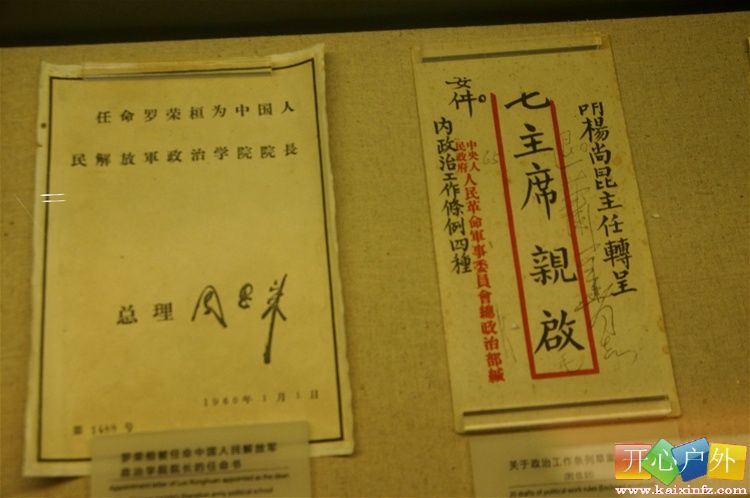 任命罗荣桓为中国人
民解放軍政治学院院長
总理 周恩来
1960年1月1日
第 1488 号
罗荣桓被任命中国人民解放军
政治学院院长的任命书
Appointment letter of Luo Ronghuan appointed as the dean
liberation army political school
楊尚昆主任轉呈
毛主席親啟
中央人民政府人民革命軍事委員會總政治部緘
要件。
内政治工作條例四種
关于政治工作条例草案
drafts of political work rules
开心户外
www.kaixinfz.com